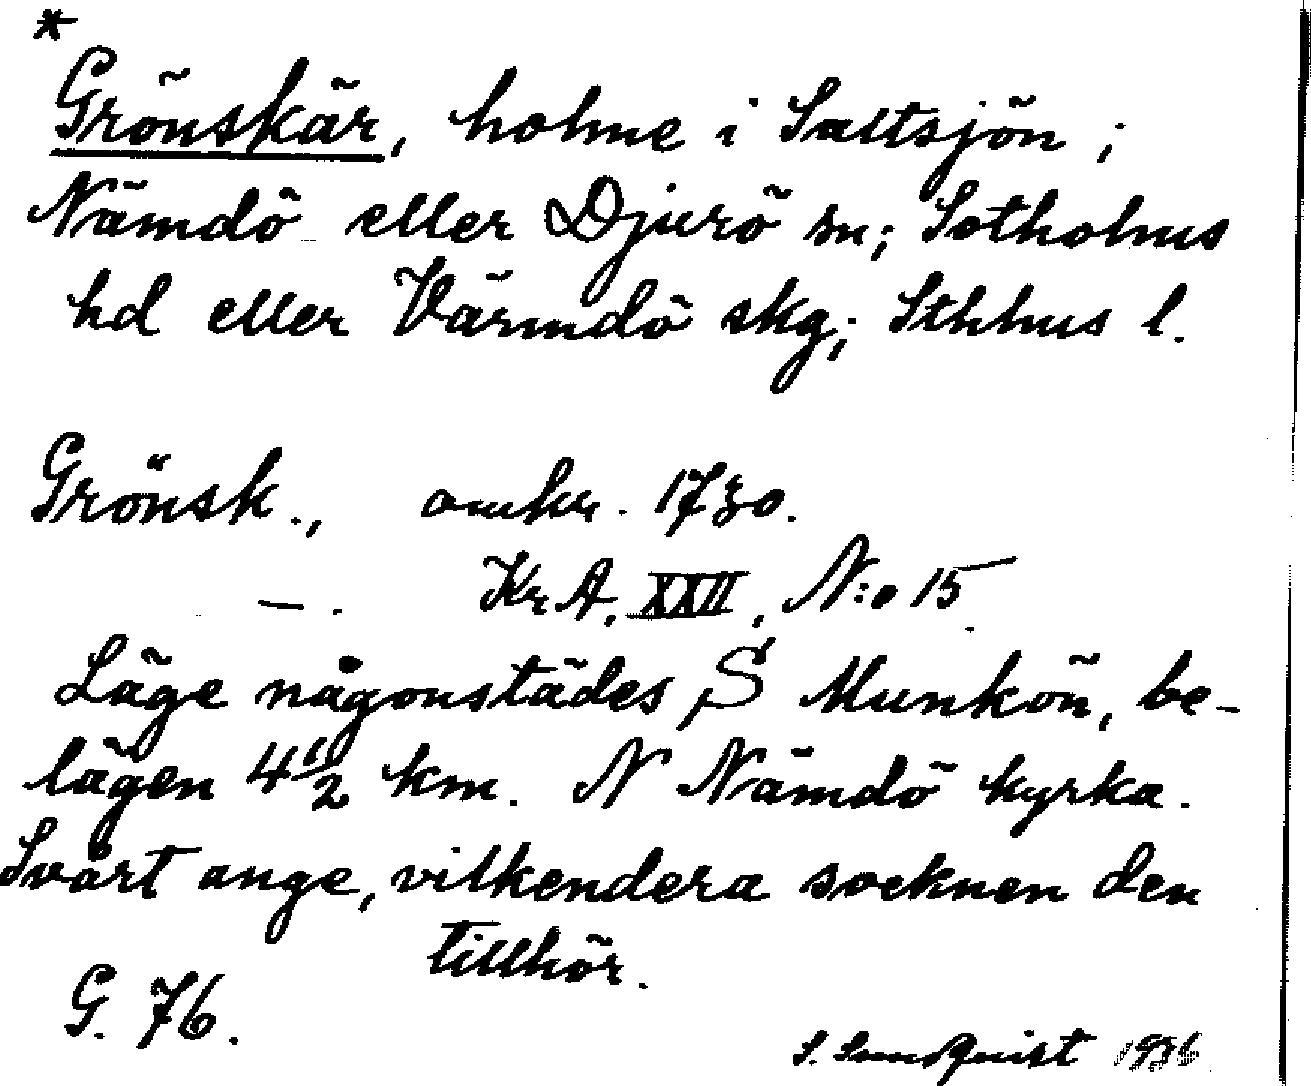 *
Grönskär, holme i Saltsjön;
Nämdö eller Djurö sn; Sotholms
hd eller Värmdö skg; Sthlms l.
Grönsk., omkr. 1730.
—. Kr A, XXII, N:o 15
Läge någonstädes S Munkön, be-
lägen 4½ km. N Nämdö kyrka.
Svårt ange, vilkendera socknen den
tillhör.
G. 76.
S. Sundquist 1936